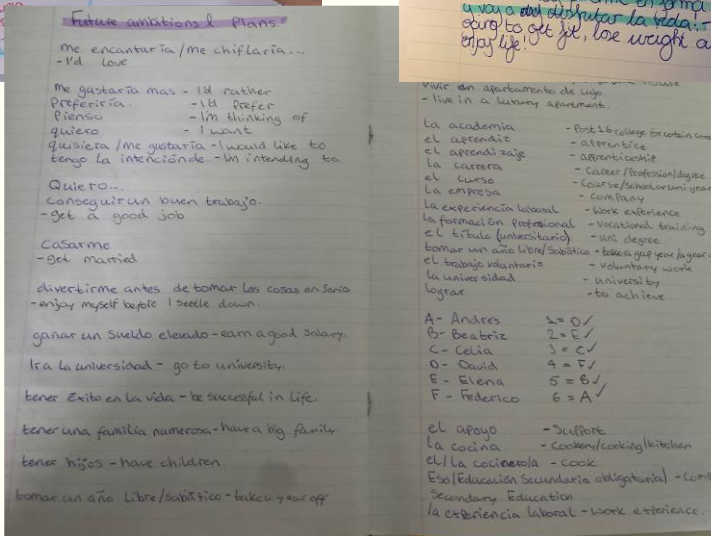 Future ambitions & Plans.
me encantaría/me chiflaría...
- I'd love
me gustaría mas - I'd rather
Preferiría. - I'd Prefer
Pienso - I'm thinking of
quiero - I want
quisiera/me gustaría - I would like to
tengo la intención de - I'm intending to
Quiero...
conseguir un buen trabajo.
- get a good job
casarme
- get married
divertirme antes de tomar las cosas en serio
- enjoy myself before I settle down.
ganar un sueldo elevado - earn a good salary.
Ir a la universidad - go to university.
tener Exito en la vida - be successful in life.
tener una familia numerosa - have a big family
tener hijos - have children.
tomar un año libre/sabático - take a year off
u voy a disfutar la vida:-
going to get fit, lose weight a
enjoy life!
vivir en apartamento de lujo
- live in a luxury apartment.
La academia - Post 16 college for certain
el aprendiz - apprentice
el aprendizaje - apprenticeship
la carrera - career/Profession/degree
el curso - course/school or uni year
La empresa - company
la experiencia laboral - work experience
la formación profesional - vocational training
el título (universitario) - uni degree
tomar un año libre/sabático - take a gap year/a year
el trabajo voluntario - voluntary work
la universidad - university
lograr - to achieve
A - Andres 1 = D ✓
B - Beatriz 2 = E ✓
C - Celia 3 = C ✓
D - David 4 = F ✓
E - Elena 5 = B ✓
F - Federico 6 = A ✓
el apoyo - support
la cocina - cookery/cooking/kitchen
el/la cocinero/a - cook
Eso (Educación Secundaria obligatoria) - Com
Secondary Education
la experiencia laboral - work experience.